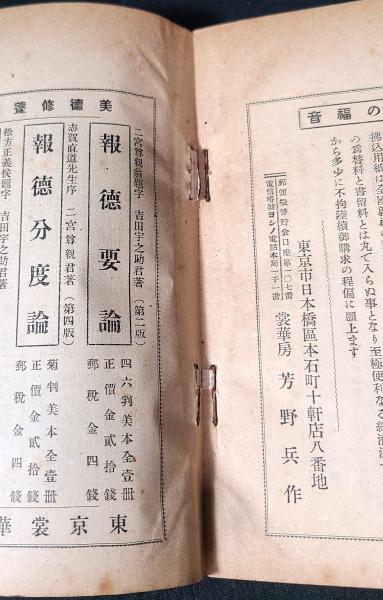 の福音
の爲替料と書留料とは丸で入らぬ事となり至極便利なる
から多少に不拘陸續御購求の程偏に願上ます
郵便振替貯金口座第一〇七番
電信略號ヨシノ電話本局一千一番
東京市日本橋區本石町十軒店八番地
裳華房 芳野兵作
美德修養
二宮尊親翁題字 吉田宇之助君著(第二版)
報德要論
四六判美本全壹冊
正價金貳拾錢
郵稅金四錢
志賀直道先生序 二宮尊親君著(第四版)
報德分度論
菊判美本全壹冊
正價金貳拾錢
郵稅金四錢
松方正義侯題字 吉田宇之助君著
東京裳華